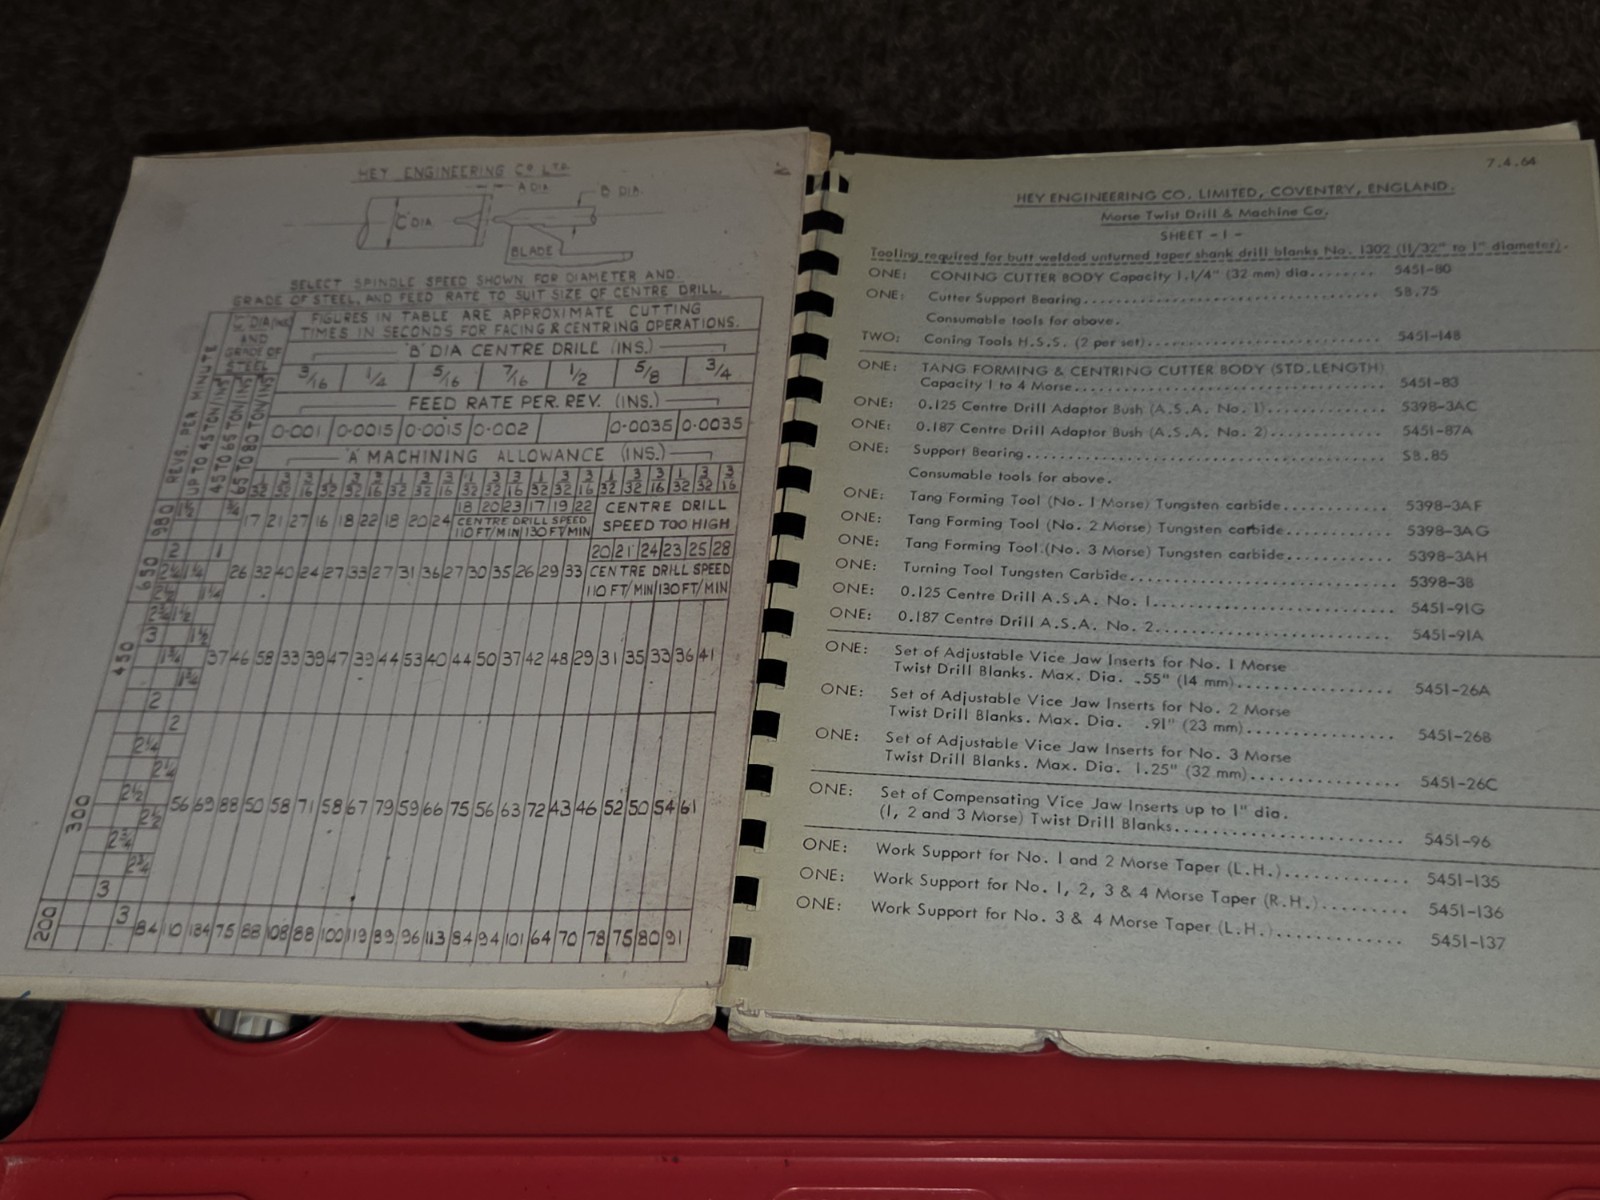 HEY ENGINEERING CO LTD.
A DIA.
B DIA.
'C' DIA
BLADE
SELECT SPINDLE SPEED SHOWN FOR DIAMETER AND
GRADE OF STEEL, AND FEED RATE TO SUIT SIZE OF CENTRE DRILL.
REVS. PER MINUTE
DIA (INS) AND GRADE OF STEEL
UP TO 45 TON/INS
45 TO 65 TON/INS
65 TO 80 TON/INS
FIGURES IN TABLE ARE APPROXIMATE CUTTING
TIMES IN SECONDS FOR FACING & CENTRING OPERATIONS.
'B' DIA CENTRE DRILL (INS.)
3/16 1/4 5/16 7/16 1/2 5/8 3/4
FEED RATE PER. REV. (INS.)
0·001 0·0015 0·0015 0·002 0·0035 0·0035
'A' MACHINING ALLOWANCE (INS.)
1/32 3/32 3/16 1/32 3/32 3/16 1/32 3/32 3/16 1/32 3/32 3/16 1/32 3/32 3/16 1/32 3/32 3/16 1/32 3/32 3/16
980
17 21 27 16 18 22 18 20 24 18 20 23 17 19 22
CENTRE DRILL SPEED
110 FT/MIN 130 FT/MIN
CENTRE DRILL
SPEED TOO HIGH
650
2 1
26 32 40 24 27 33 27 31 36 27 30 35 26 29 33 20 21 24 23 25 28
CENTRE DRILL SPEED
110 FT/MIN 130 FT/MIN
450
1 1/2
3 1 1/2
1 3/4
1 3/4
2
37 46 58 33 39 47 39 44 53 40 44 50 37 42 48 29 31 35 33 36 41
300
2
2 1/4
2 1/4
2 1/2
2 1/2
2 3/4
2 3/4
3
56 69 88 50 58 71 58 67 79 59 66 75 56 63 72 43 46 52 50 54 61
200
3
84 110 134 75 88 108 88 100 119 89 96 113 84 94 101 64 70 78 75 80 91
7.4.64
HEY ENGINEERING CO. LIMITED, COVENTRY, ENGLAND.
Morse Twist Drill & Machine Co.
SHEET - 1 -
Tooling required for butt welded unturned taper shank drill blanks No. 1302 (11/32" to 1" diameter).
ONE: CONING CUTTER BODY Capacity 1.1/4" (32 mm) dia........ 5451-80
ONE: Cutter Support Bearing........ SB.75
Consumable tools for above.
TWO: Coning Tools H.S.S. (2 per set)........ 5451-148
ONE: TANG FORMING & CENTRING CUTTER BODY (STD.LENGTH)
Capacity 1 to 4 Morse........ 5451-83
ONE: 0.125 Centre Drill Adaptor Bush (A.S.A. No. 1)........ 5398-3AC
ONE: 0.187 Centre Drill Adaptor Bush (A.S.A. No. 2)........ 5451-87A
ONE: Support Bearing........ SB.85
Consumable tools for above.
ONE: Tang Forming Tool (No. 1 Morse) Tungsten carbide........ 5398-3AF
ONE: Tang Forming Tool (No. 2 Morse) Tungsten carbide........ 5398-3AG
ONE: Tang Forming Tool.(No. 3 Morse) Tungsten carbide........ 5398-3AH
ONE: Turning Tool Tungsten Carbide........ 5398-38
ONE: 0.125 Centre Drill A.S.A. No. 1........ 5451-91G
ONE: 0.187 Centre Drill A.S.A. No. 2........ 5451-91A
ONE: Set of Adjustable Vice Jaw Inserts for No. 1 Morse
Twist Drill Blanks. Max. Dia. .55" (14 mm)........ 5451-26A
ONE: Set of Adjustable Vice Jaw Inserts for No. 2 Morse
Twist Drill Blanks. Max. Dia. .91" (23 mm)........ 5451-26B
ONE: Set of Adjustable Vice Jaw Inserts for No. 3 Morse
Twist Drill Blanks. Max. Dia. 1.25" (32 mm)........ 5451-26C
ONE: Set of Compensating Vice Jaw Inserts up to 1" dia.
(1, 2 and 3 Morse) Twist Drill Blanks........ 5451-96
ONE: Work Support for No. 1 and 2 Morse Taper (L.H.)........ 5451-135
ONE: Work Support for No. 1, 2, 3 & 4 Morse Taper (R.H.)........ 5451-136
ONE: Work Support for No. 3 & 4 Morse Taper (L.H.)........ 5451-137